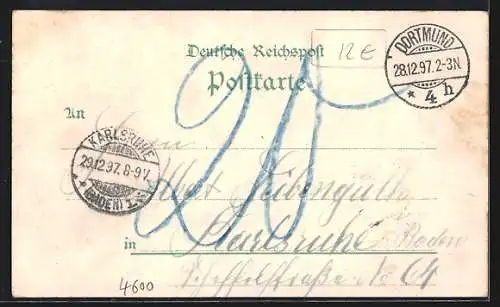 Deutsche Reichspost
Postkarte
12 €
DORTMUND
28.12.97. 2-3N.
* 4 h
An
Herrn
KARLSRUHE
29.12.97. 8-9V.
(BADEN) 1.
20
in Karlsruhe i. Baden
Scheffelstraße No 64
4600